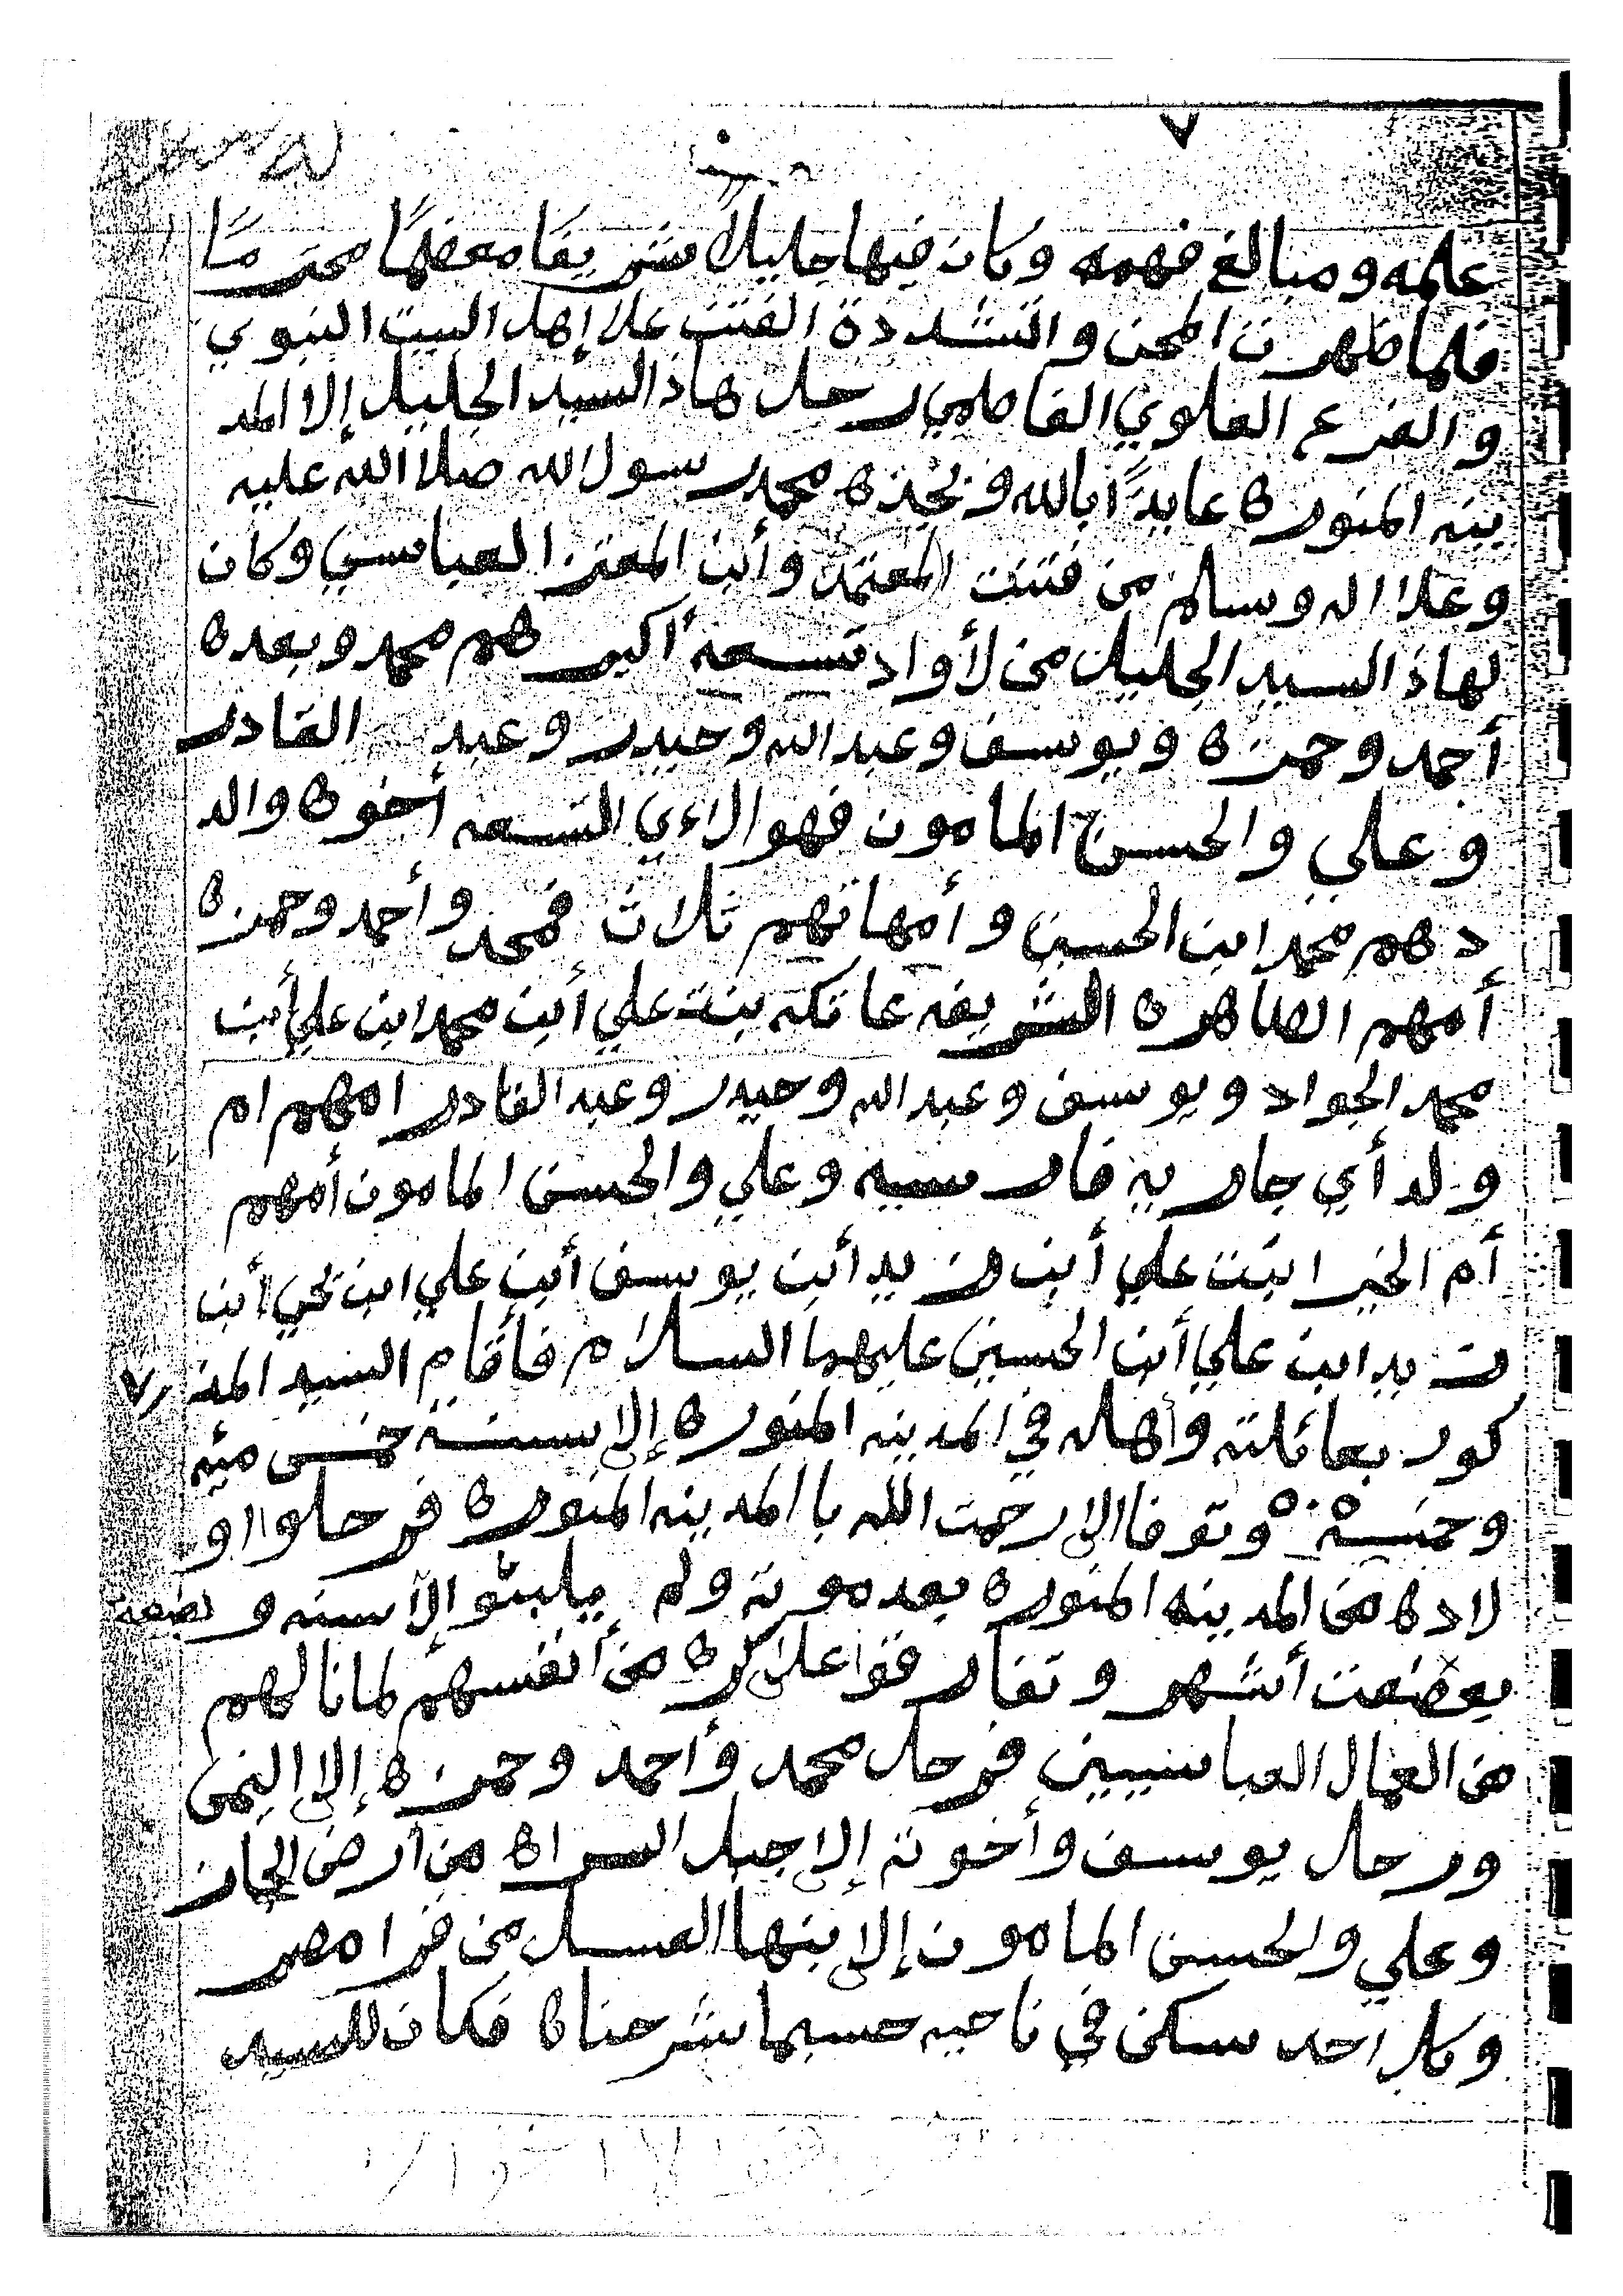 ٧
علمه ومبالغ فهمه وكان فيها جليلاً شريفًا معظمًا محترمًا
فلما ظهرت المحن واتشددة الفتن علا إهل البيت النبوي
والفرع العلوي الفاطمي رحل هاذ السيد الجليل إلا المد
ينه المنوره عايدًا بالله وبجده محمد رسول الله صلا الله عليه
وعلا اله وسلم من فتنت المعتمد وأبن المعتز العباسي وكان
لهاذ السيد الجليل من لأواد تسعه أكبرهم محمد وبعده
أحمد وحمزه ويوسف وعبد الله وحيدر وعبد القادر
وعلي والحسن المامون فهوالاءي التسعه أخوه والد
دهم محمد ابن الحسين وأمهاتهم ثلاث فمحمد وأحمد وحمزه
أمهم الطاهره الشريفه عاتكه بنت علي أبن محمد ابن علي أبن
محمد الجواد ويوسف وعبد الله وحيدر وعبد القادر امهم ام
ولد أي جاريه فارسيه وعلي والحسن المامون أمهم
أم الخير ابنت علي أبن زيد أبن يوسف أبن علي ابن يحي أبن
زيد ابن علي أبن الحسين عليهما السلام فأقام السيد المذ
كور بعائلته وأهله في المدينه المنوره إلا سنة خمس ميه
وخمسه وتوفا إلا رحمت الله با المدينه المنوره فرحلوا او
لاده من المدينه المنوره بعد موته ولم يلبثو إلا سنه و بضعة
بعضعت أشهر وتفارقوا علا كره من أنفسهم لما نالهم
من العمال العباسيين فرحل محمد وأحمد وحمزه إلا اليمن
ورحل يوسف وأخوته إلا جبل السراه من أرض الحجاز
وعلي ولحسن المامون إلا بنها العسل من قرا مصر
وكل احد سكن في ناحيه حسبما شرحناه فكان للسيد